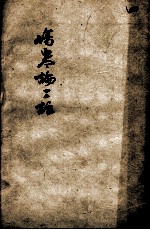 傷寒論三註